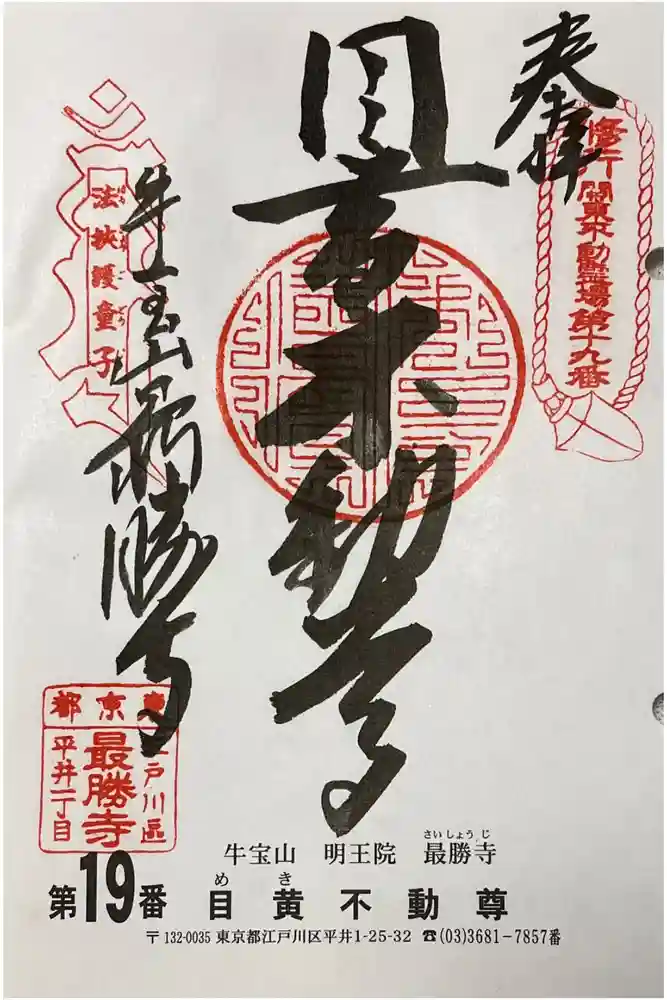 奉拝
修行 関東不動霊場第十九番
目黄不動尊
牛宝山最勝寺
法挾護童子
東京都
江戸川區
最勝寺
平井一丁目
牛宝山 明王院 最勝寺
さいしょうじ
第19番 目黄不動尊
めき
〒132-0035 東京都江戸川区平井1-25-32 ☎(03)3681-7857番